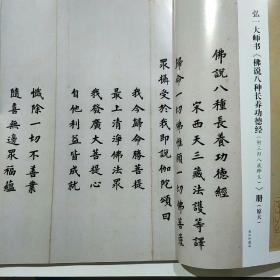 弘一大师书《佛说八种长养功德经》册（原大）
佛說八種長養功德經
宋西天三藏法護等譯
歸命一切佛惟願一切佛菩薩
眾攝受於我即說伽陀頌曰
我今歸命勝菩提
最上清淨佛法眾
我發廣大菩提心
自他利益皆成就
懺除一切不善業
隨喜無邊眾福蘊